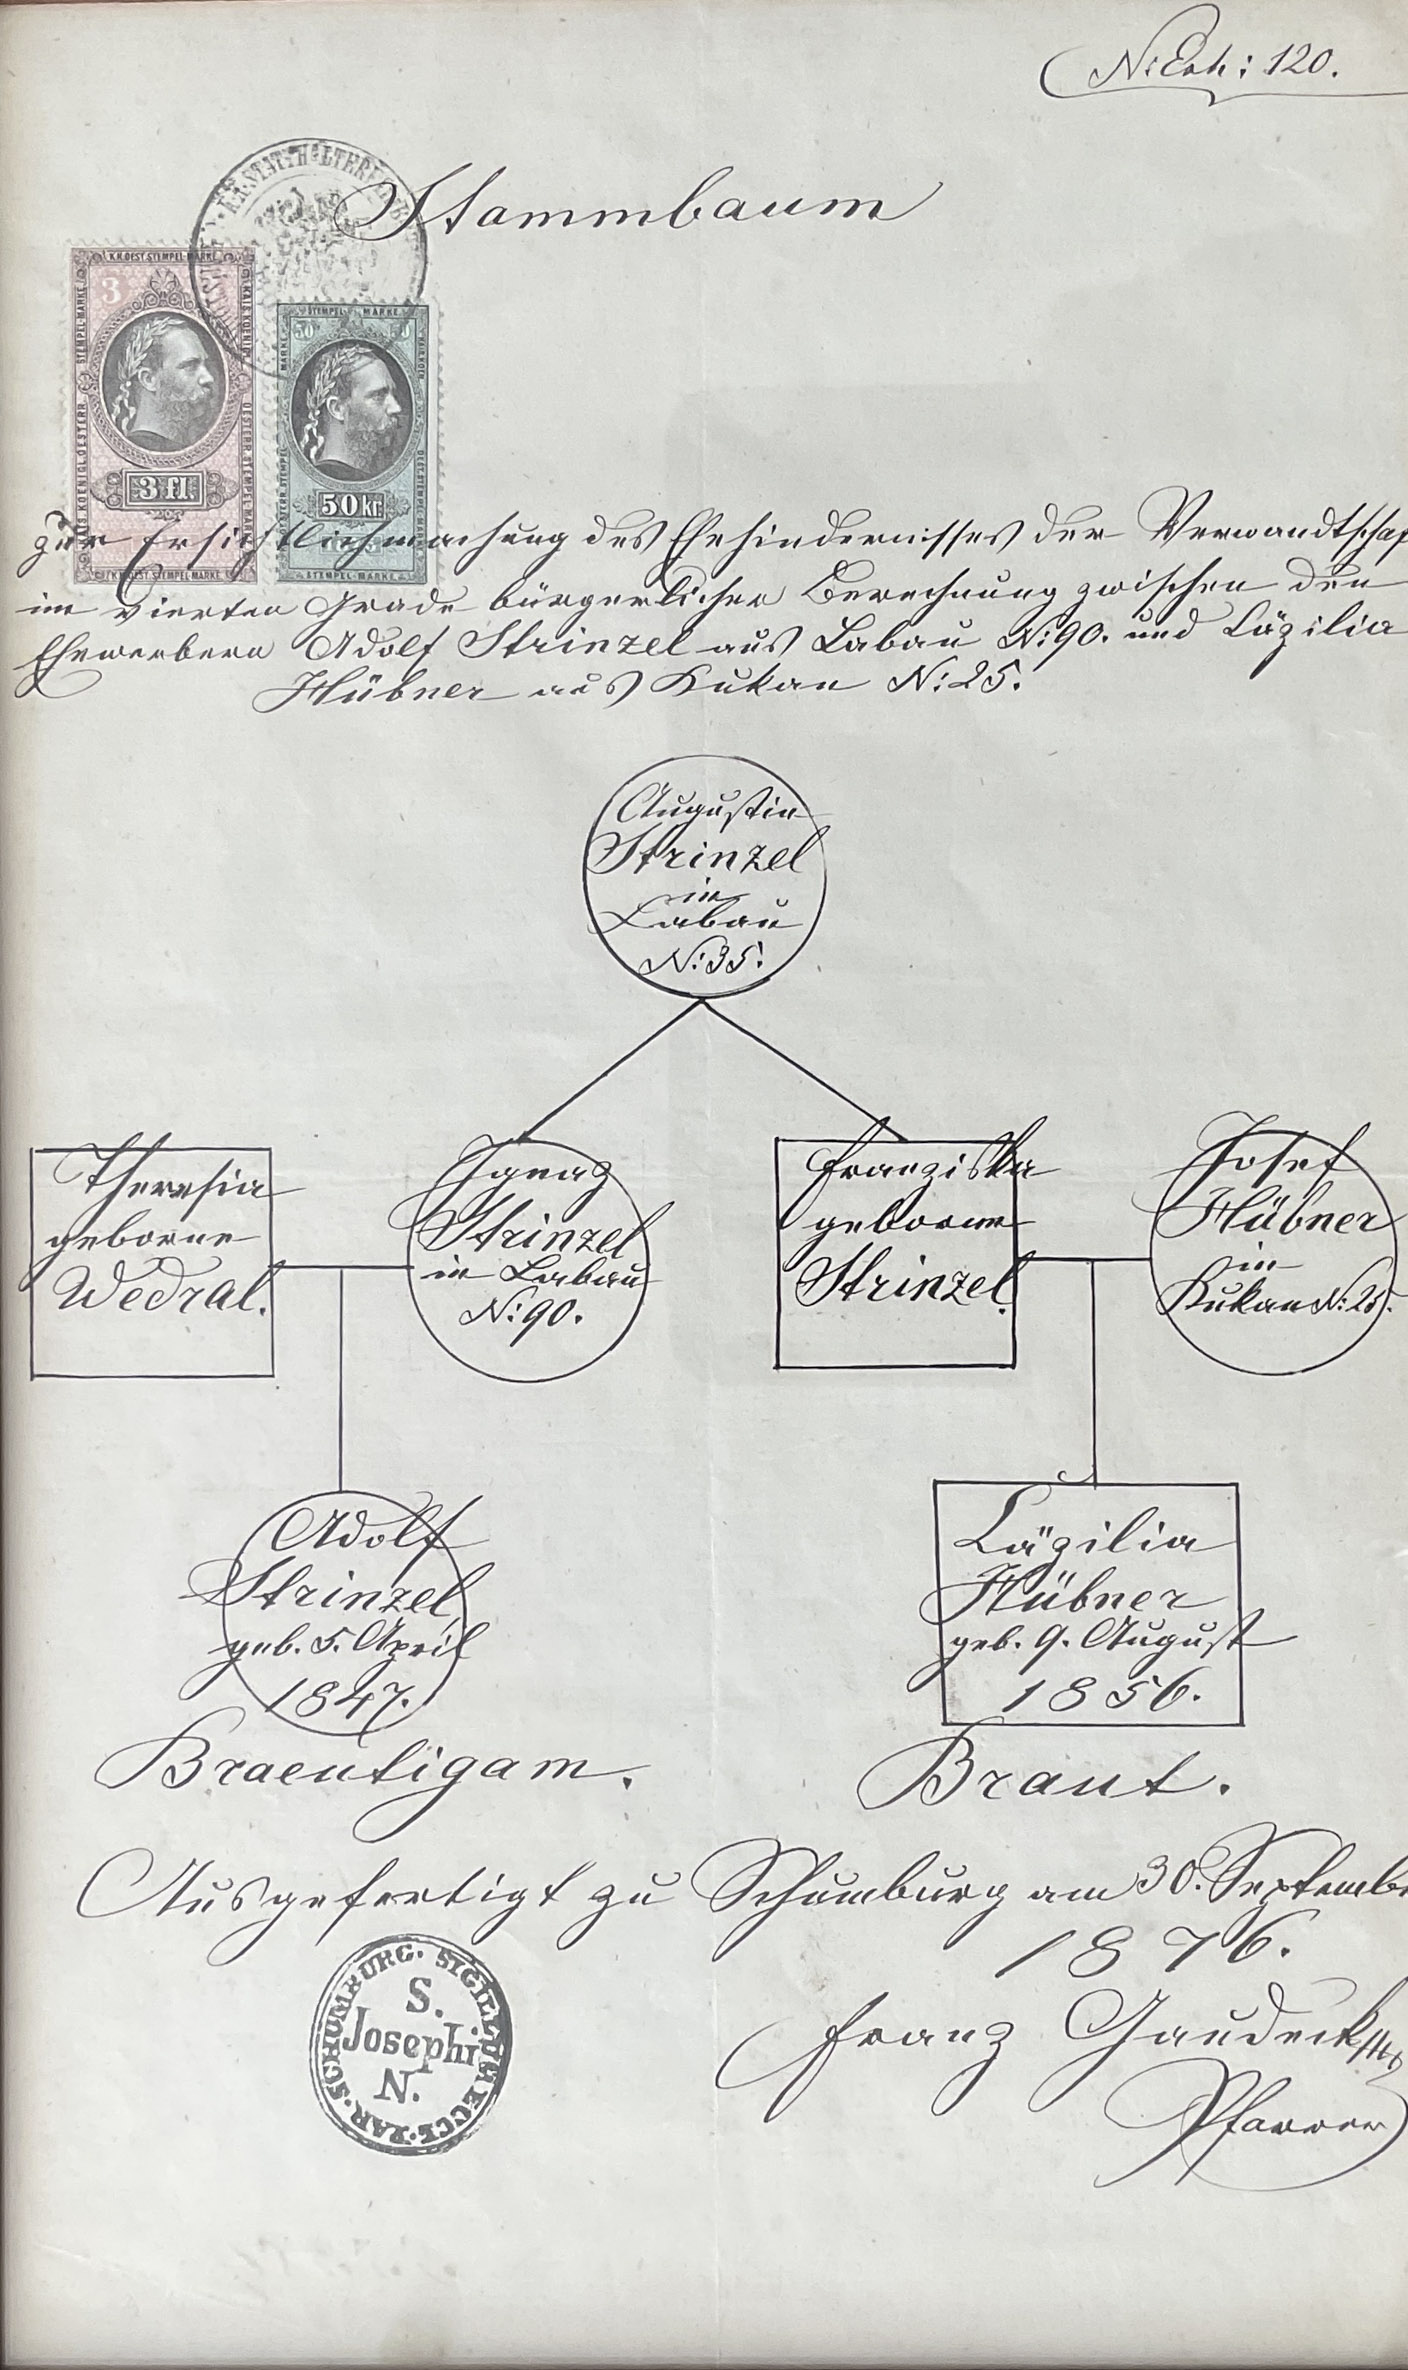 N: Exh: 120.
Stammbaum
K.K. OEST. STEMPEL-MARKE
3
3 fl.
STEMPEL MARKE
50
50 kr.
K.K. OEST. STEMPEL-MARKE
STEMPEL-MARKE
zur Ersichtlichmachung des Ehehindernisses der Verwandtschaf
im vierten Grade bürgerlicher Berechnung zwischen den
Ehewerbern Adolf Strinzel aus Labau N: 90. und Cäzilia
Hübner aus Kukan N: 25.
Augustin
Strinzel
in
Labau
N: 35.
Theresia
geborne
Wedral.
Ignaz
Strinzel
in Labau
N: 90.
Franziska
geborne
Strinzel.
Josef
Hübner
in
Kukan N: 25.
Adolf
Strinzel
geb. 5. April
1847.
Cäzilia
Hübner
geb. 9. August
1856.
Braeutigam.
Braut.
Ausgefertigt zu Schumburg am 30. Septembe
1876.
SIGILLUM ECCL. PAR. SCHUMBURG.
S.
Josephi
N.
Franz Gaudeck
Pfarrer